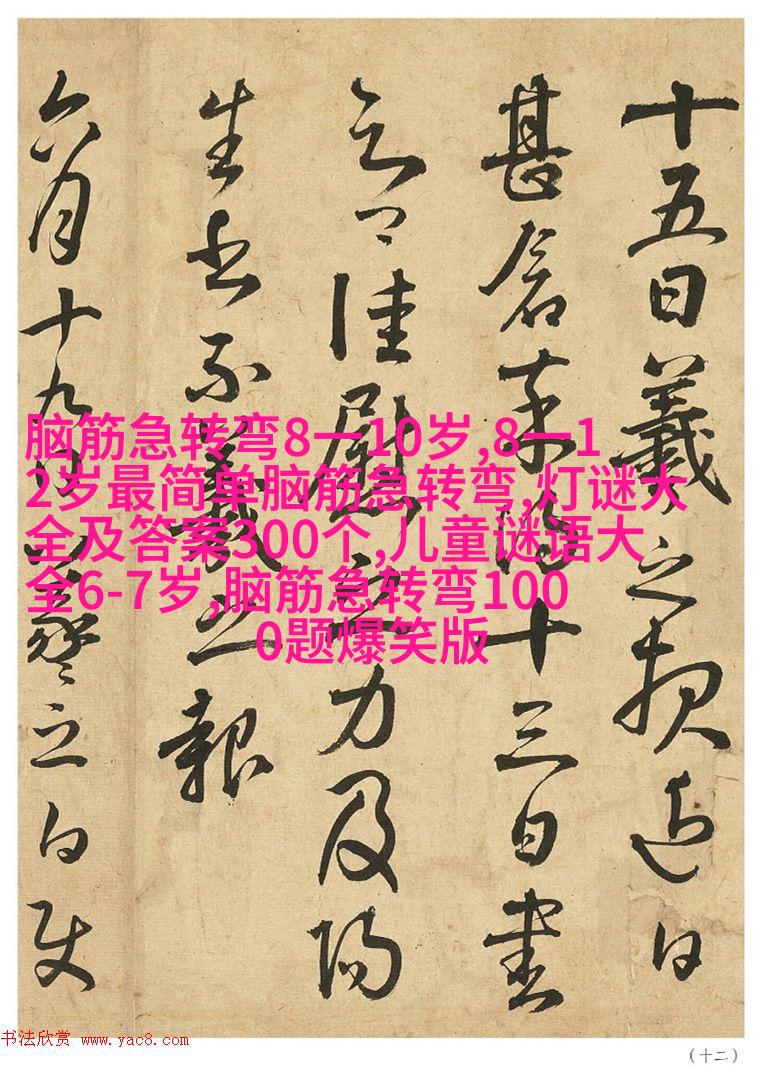 十五日羲之頓近日
甚念十三日書
佳慰力及
生不羲之報
六月十九日羲之白使
脑筋急转弯8一10岁,8一1
2岁最简单脑筋急转弯,灯谜大
全及答案300个,儿童谜语大
全6-7岁,脑筋急转弯100
0题爆笑版
书法欣赏 www.yac8.com
（十二）